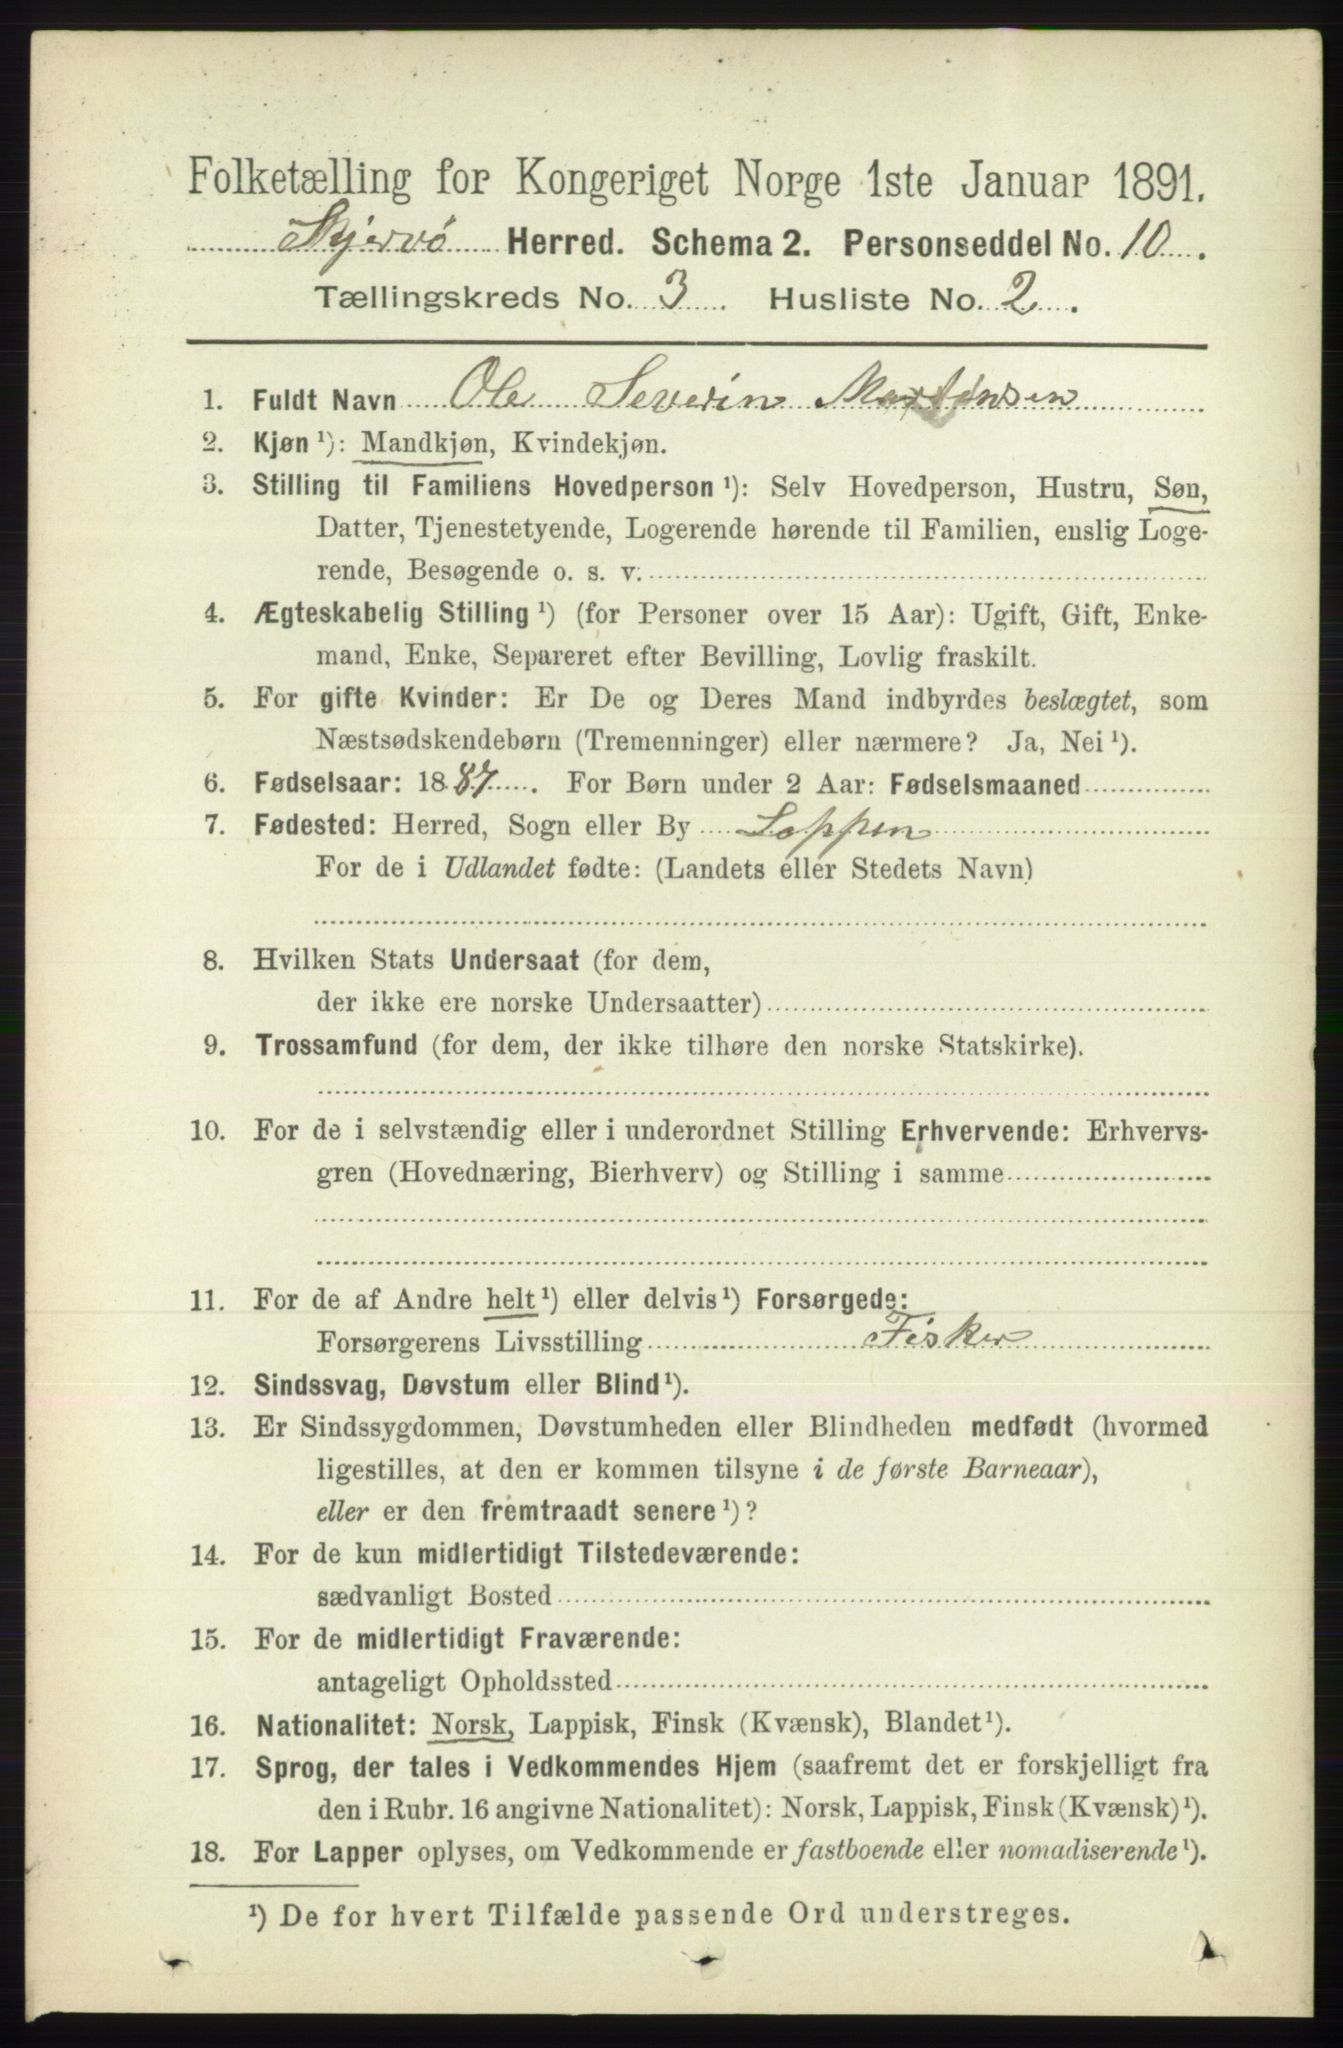 Folketælling for Kongeriget Norge 1ste Januar 1891.
Skjervø Herred. Schema 2. Personseddel No. 10.
Tællingskreds No. 3 Husliste No. 2.
1. Fuldt Navn Ole Severin Martinsen
2. Kjøn¹): Mandkjøn, Kvindekjøn.
3. Stilling til Familiens Hovedperson¹): Selv Hovedperson, Hustru, Søn,
Datter, Tjenestetyende, Logerende hørende til Familien, enslig Loge-
rende, Besøgende o. s. v.
4. Ægteskabelig Stilling¹) (for Personer over 15 Aar): Ugift, Gift, Enke-
mand, Enke, Separeret efter Bevilling, Lovlig fraskilt.
5. For gifte Kvinder: Er De og Deres Mand indbyrdes beslægtet, som
Næstsødskendebørn (Tremenninger) eller nærmere? Ja, Nei¹).
6. Fødselsaar: 1887. For Børn under 2 Aar: Fødselsmaaned
7. Fødested: Herred, Sogn eller By Loppen
For de i Udlandet fødte: (Landets eller Stedets Navn)
8. Hvilken Stats Undersaat (for dem,
der ikke ere norske Undersaatter)
9. Trossamfund (for dem, der ikke tilhøre den norske Statskirke).
10. For de i selvstændig eller i underordnet Stilling Erhvervende: Erhvervs-
gren (Hovednæring, Bierhverv) og Stilling i samme
11. For de af Andre helt¹) eller delvis¹) Forsørgede:
Forsørgerens Livsstilling Fisker
12. Sindssvag, Døvstum eller Blind¹).
13. Er Sindssygdommen, Døvstumheden eller Blindheden medfødt (hvormed
ligestilles, at den er kommen tilsyne i de første Barneaar),
eller er den fremtraadt senere¹)?
14. For de kun midlertidigt Tilstedeværende:
sædvanligt Bosted
15. For de midlertidigt Fraværende:
antageligt Opholdssted
16. Nationalitet: Norsk, Lappisk, Finsk (Kvænsk), Blandet¹).
17. Sprog, der tales i Vedkommendes Hjem (saafremt det er forskjelligt fra
den i Rubr. 16 angivne Nationalitet): Norsk, Lappisk, Finsk (Kvænsk)¹).
18. For Lapper oplyses, om Vedkommende er fastboende eller nomadiserende¹).
¹) De for hvert Tilfælde passende Ord understreges.